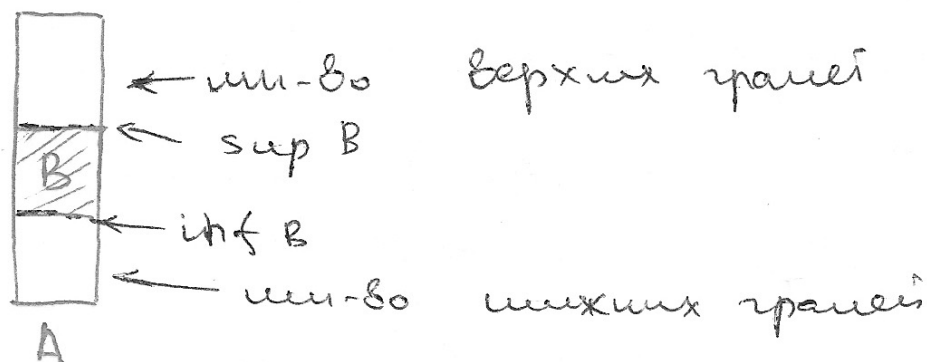 мн-во верхних граней
sup B
B
inf B
мн-во нижних граней
A